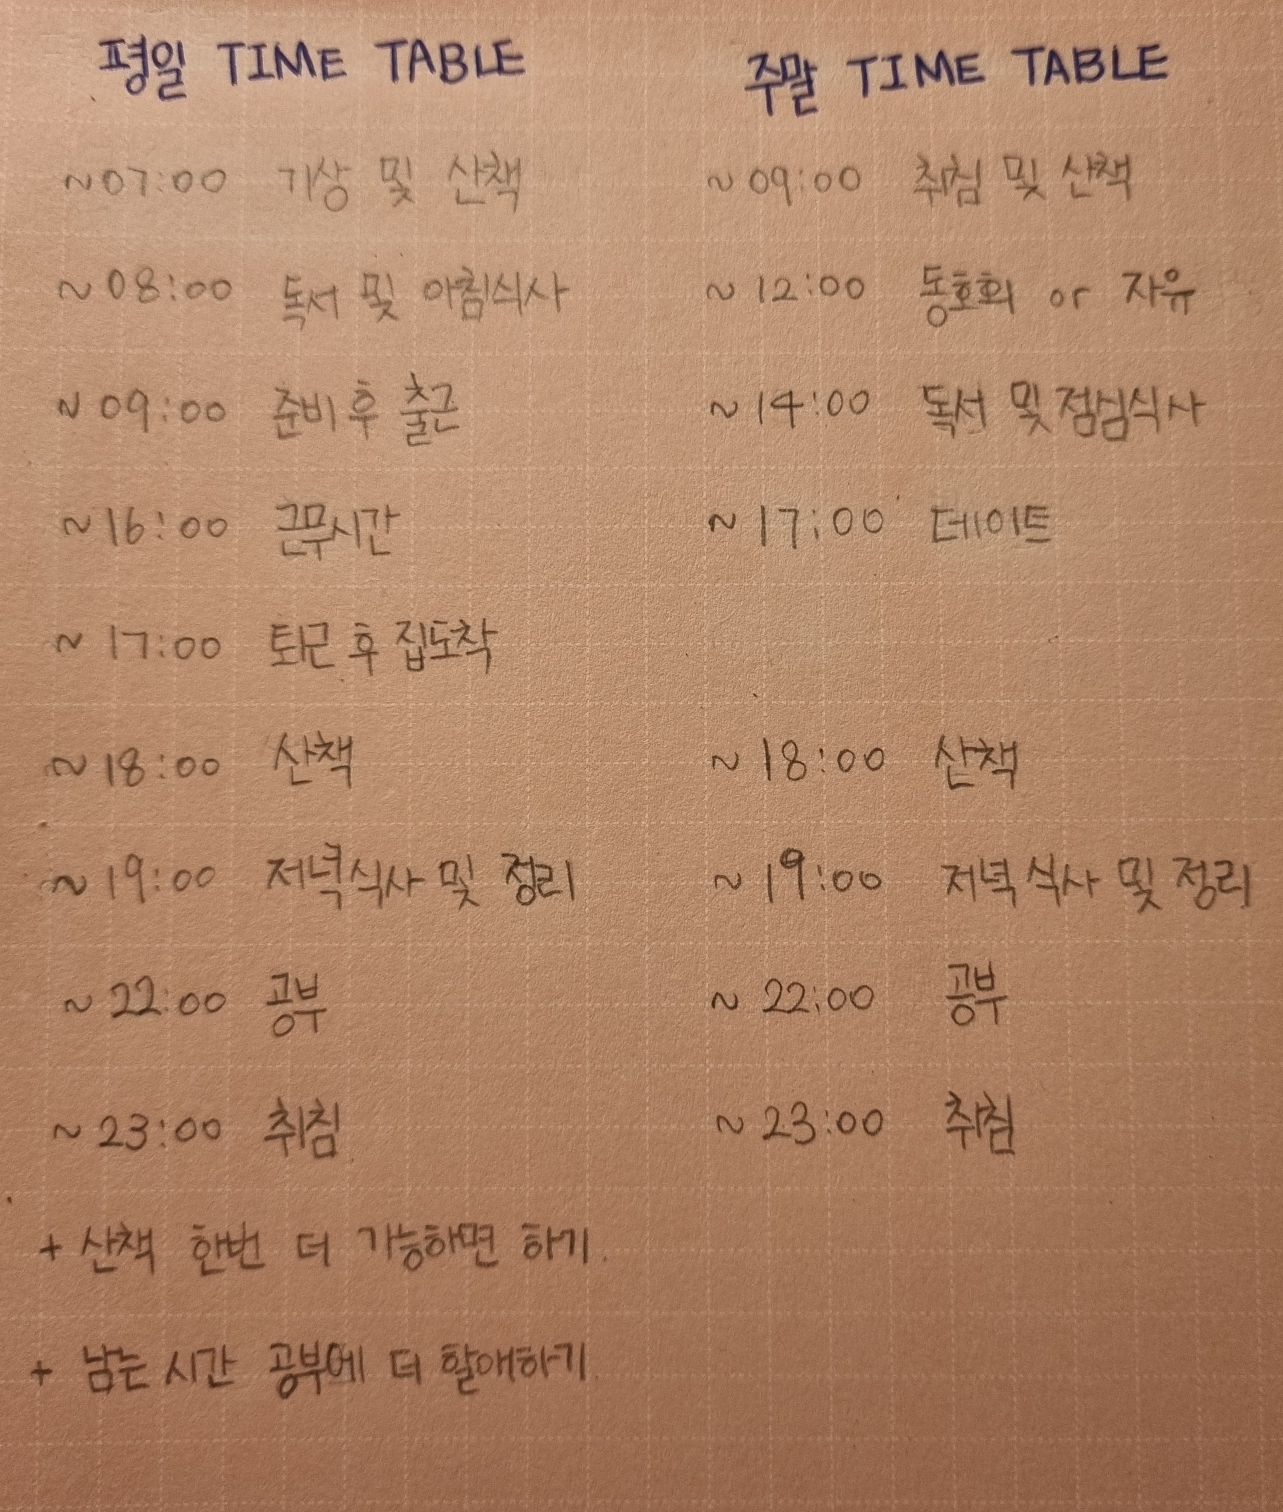 평일 TIME TABLE
~07:00 기상 및 산책
~08:00 독서 및 아침식사
~09:00 준비 후 출근
~16:00 근무시간
~17:00 퇴근 후 집도착
~18:00 산책
~19:00 저녁식사 및 정리
~22:00 공부
~23:00 취침
+ 산책 한번 더 가능하면 하기.
+ 남는 시간 공부에 더 할애하기.
주말 TIME TABLE
~09:00 취침 및 산책
~12:00 동호회 or 자유
~14:00 독서 및 점심식사
~17:00 데이트
~18:00 산책
~19:00 저녁 식사 및 정리
~22:00 공부
~23:00 취침